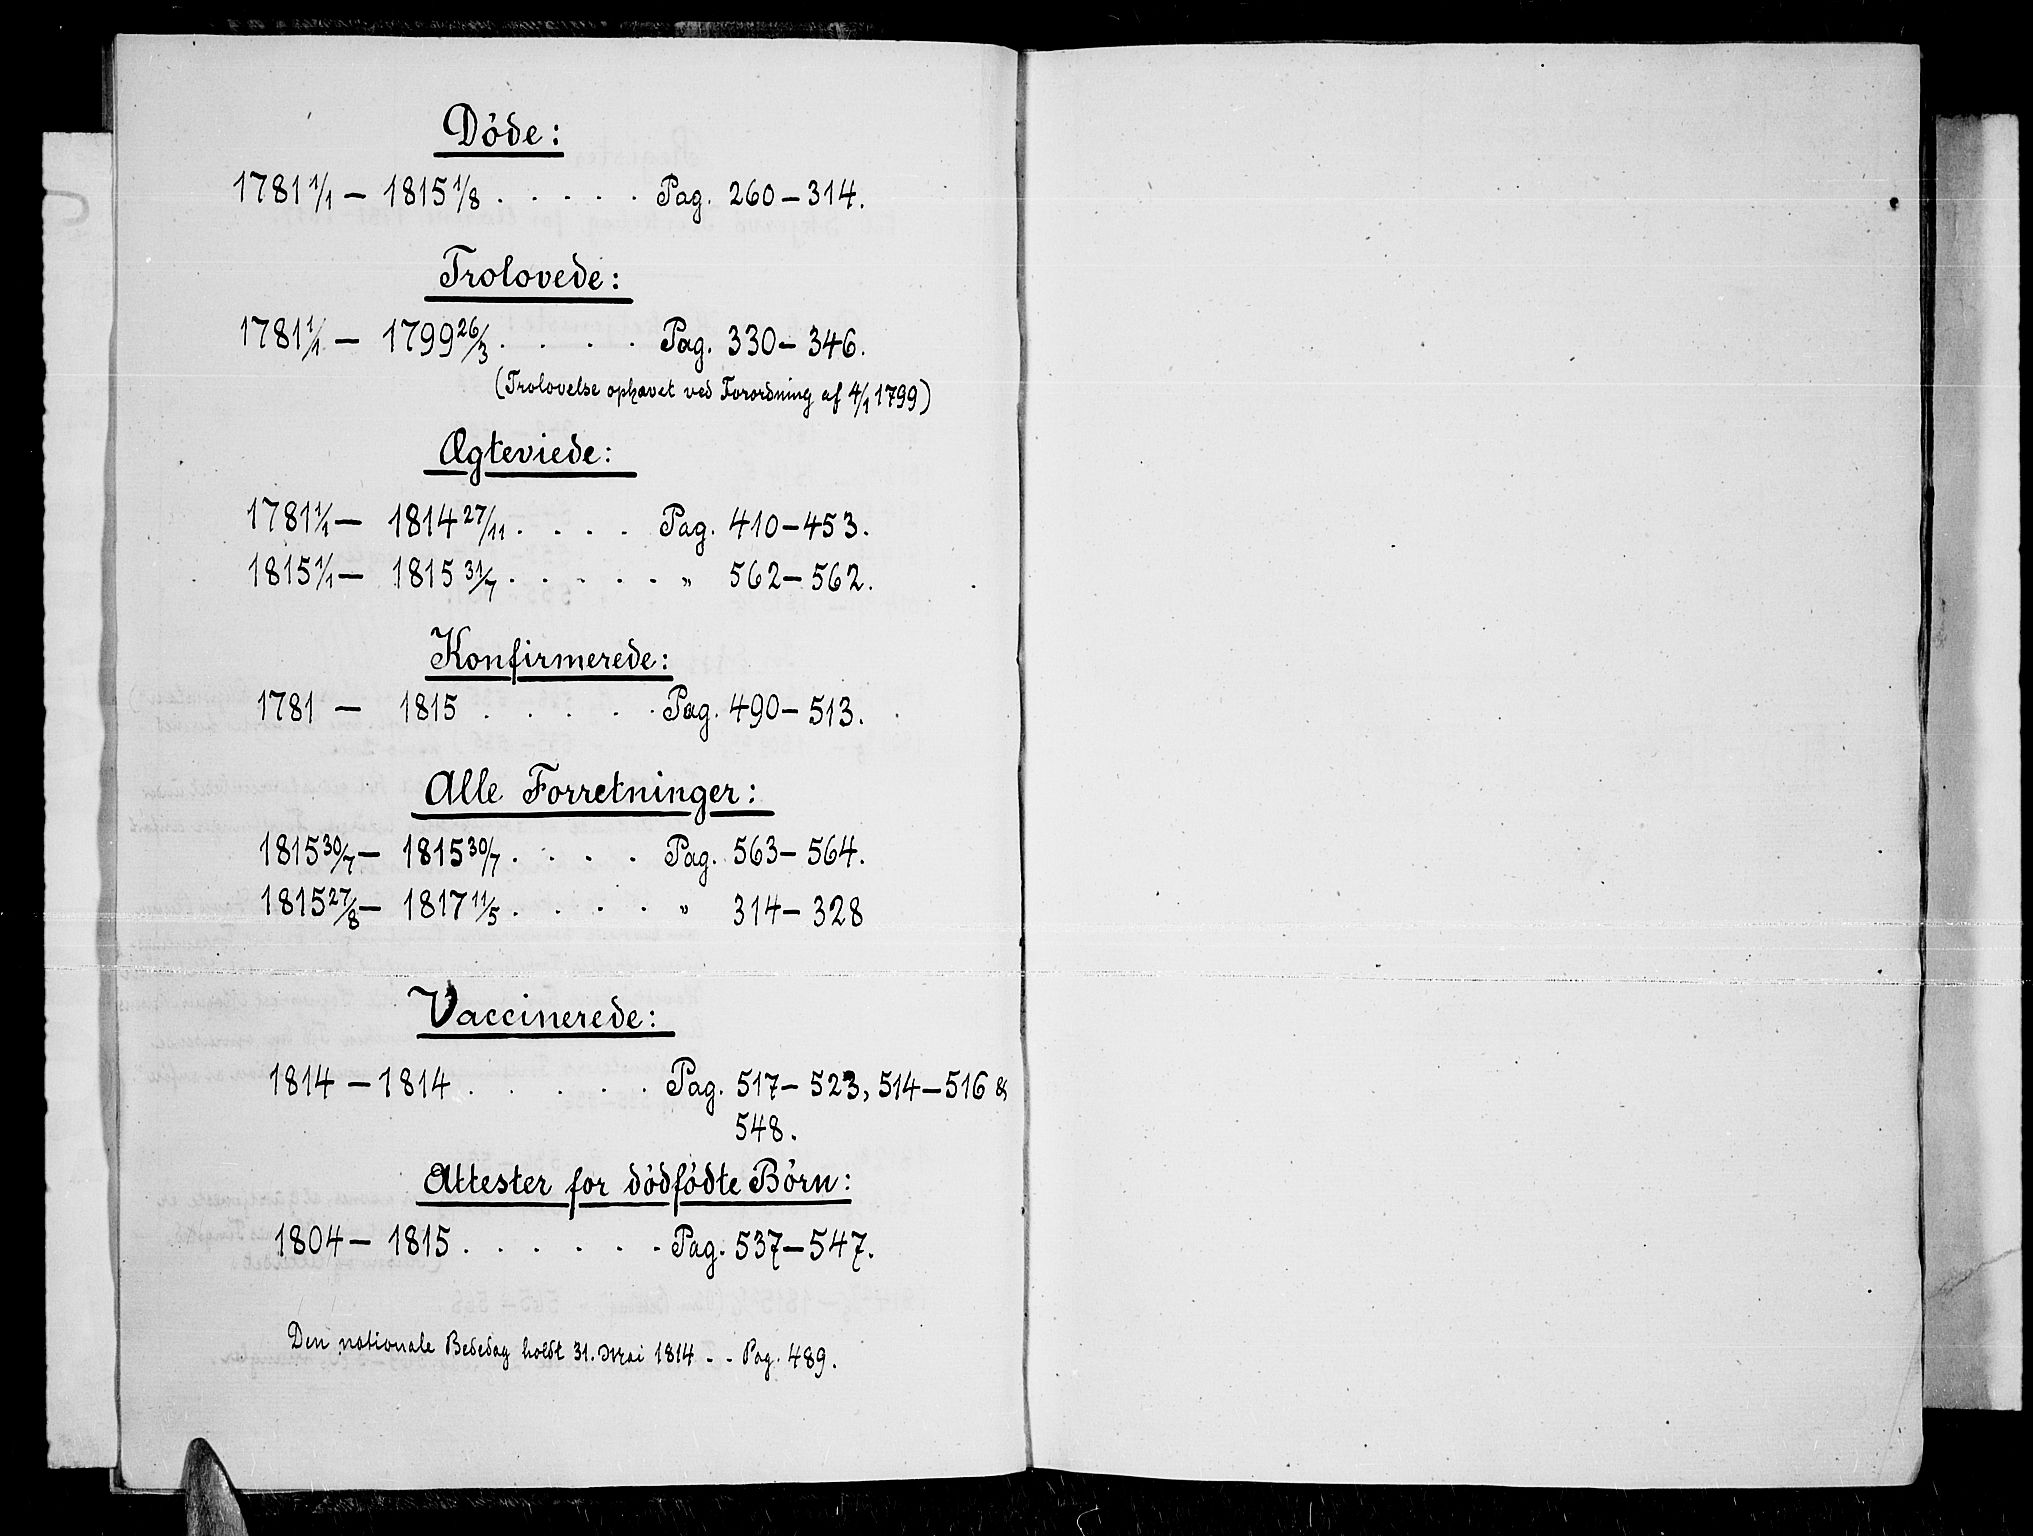 Döde:
1781 1/1 – 1815 1/8 . . . . . Pag. 260 – 314.
Trolovede:
1781 1/1 – 1799 26/3 . . . . Pag. 330 – 346.
(Trolovelse ophævet ved Forordning af 4/1 1799)
Ægteviede:
1781 1/1 – 1814 27/11 . . . . Pag. 410 – 453.
1815 1/1 – 1815 31/7 . . . . . „ 562 – 562.
Konfirmerede:
1781 – 1815 . . . . . Pag. 490 – 513.
Alle Forretninger:
1815 30/7 – 1815 30/7 . . . . Pag. 563 – 564.
1815 27/8 – 1817 11/5 . . . . . „ 314 – 328
Vaccinerede:
1814 – 1814 . . . . . Pag. 517 – 523, 514 – 516 &
548.
Attester for dödfödte Börn:
1804 – 1815 . . . . . . Pag. 537 – 547.
Den nationale Bededag holdt 31. Mai 1814 . . Pag. 489.